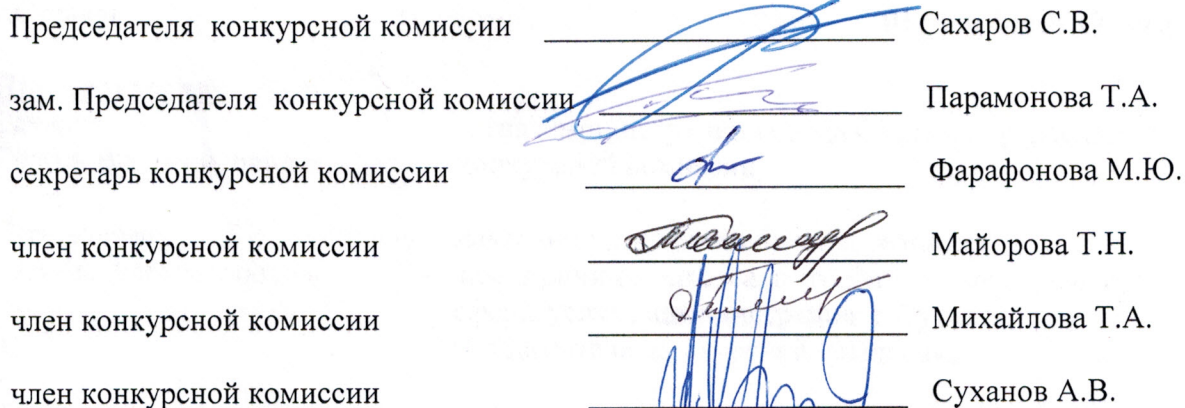 Председателя конкурсной комиссии Сахаров С.В.
зам. Председателя конкурсной комиссии Парамонова Т.А.
секретарь конкурсной комиссии Фарафонова М.Ю.
член конкурсной комиссии Майорова Т.Н.
член конкурсной комиссии Михайлова Т.А.
член конкурсной комиссии Суханов А.В.